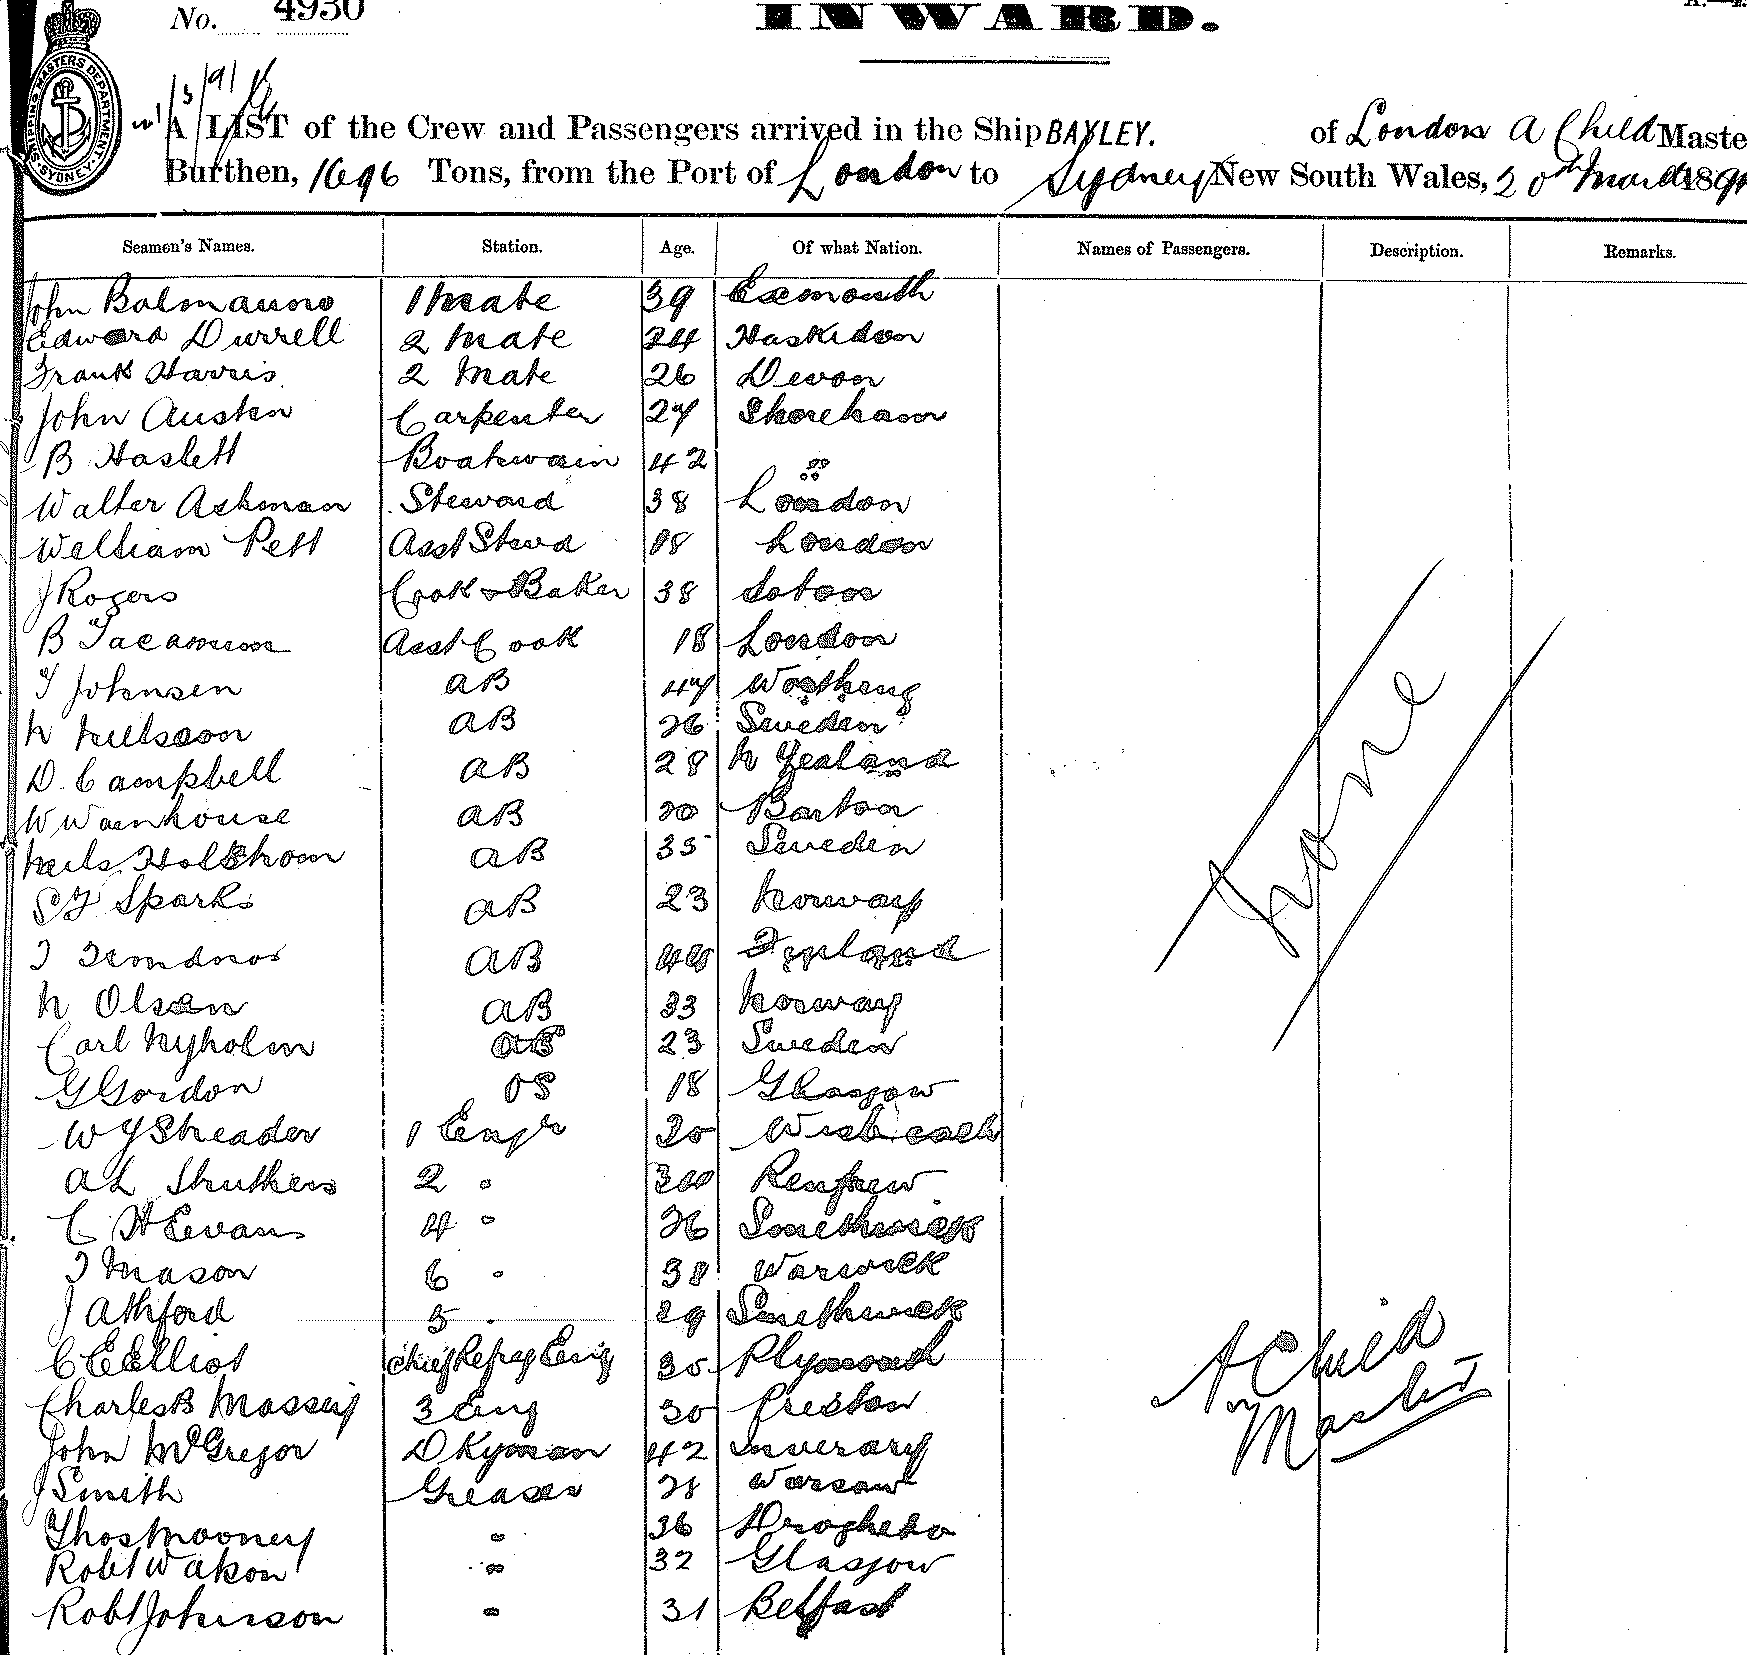 No. 4930
INWARD.
SHIPPING MASTERS DEPARTMENT. SYDNEY.
A LIST of the Crew and Passengers arrived in the Ship BAYLEY. of London A Child Maste
Burthen, 1696 Tons, from the Port of London to Sydney New South Wales, 20th March 189
Seamen's Names. Station. Age. Of what Nation. Names of Passengers. Description. Remarks.
John Balmanno 1 Mate 39 Exmouth
Edward Durrell 2 Mate 24 Hasketon
Frank Harris 2 Mate 26 Devon
John Austin Carpenter 27 Shoreham
B Haslett Boatswain 42 "
Walter Ashman Steward 38 London
William Pett Asst Stwd 18 London
J Rogers Cook & Baker 38 Soton
B Asst Cook 18 London
T Johnsen AB 47 Worthing
N Neilsson AB 26 Sweden
D. Campbell AB 28 N Zealand
W Wainhouse AB 20 Barton
Neils Holstrom AB 35 Sweden
S J Sparks AB 23 Norway
AB 44
N Olsen AB 33 Norway
Carl Nyholm AB 23 Sweden
G Gordon OS 18 Glasgow
W J Streader 1 Engr Wisbeach
A L Struthers 2 " Renfrew
C H Evans 4 " 26 Smethwick
T Mason 6 " 38 Warwick
J Athford 5 " 29 Smethwick
C E Elliot Chief Refrg Eng Plymouth
Charles B Massey 3 Eng 30 Preston
John McGregor D Kyman 42 Inverary
J Smith Greaser Warsaw
Thos Mooney " 36 Drogheda
Robt Watson " 32 Glasgow
Robt Johnson " 31 Belfast
None
A Child
Master